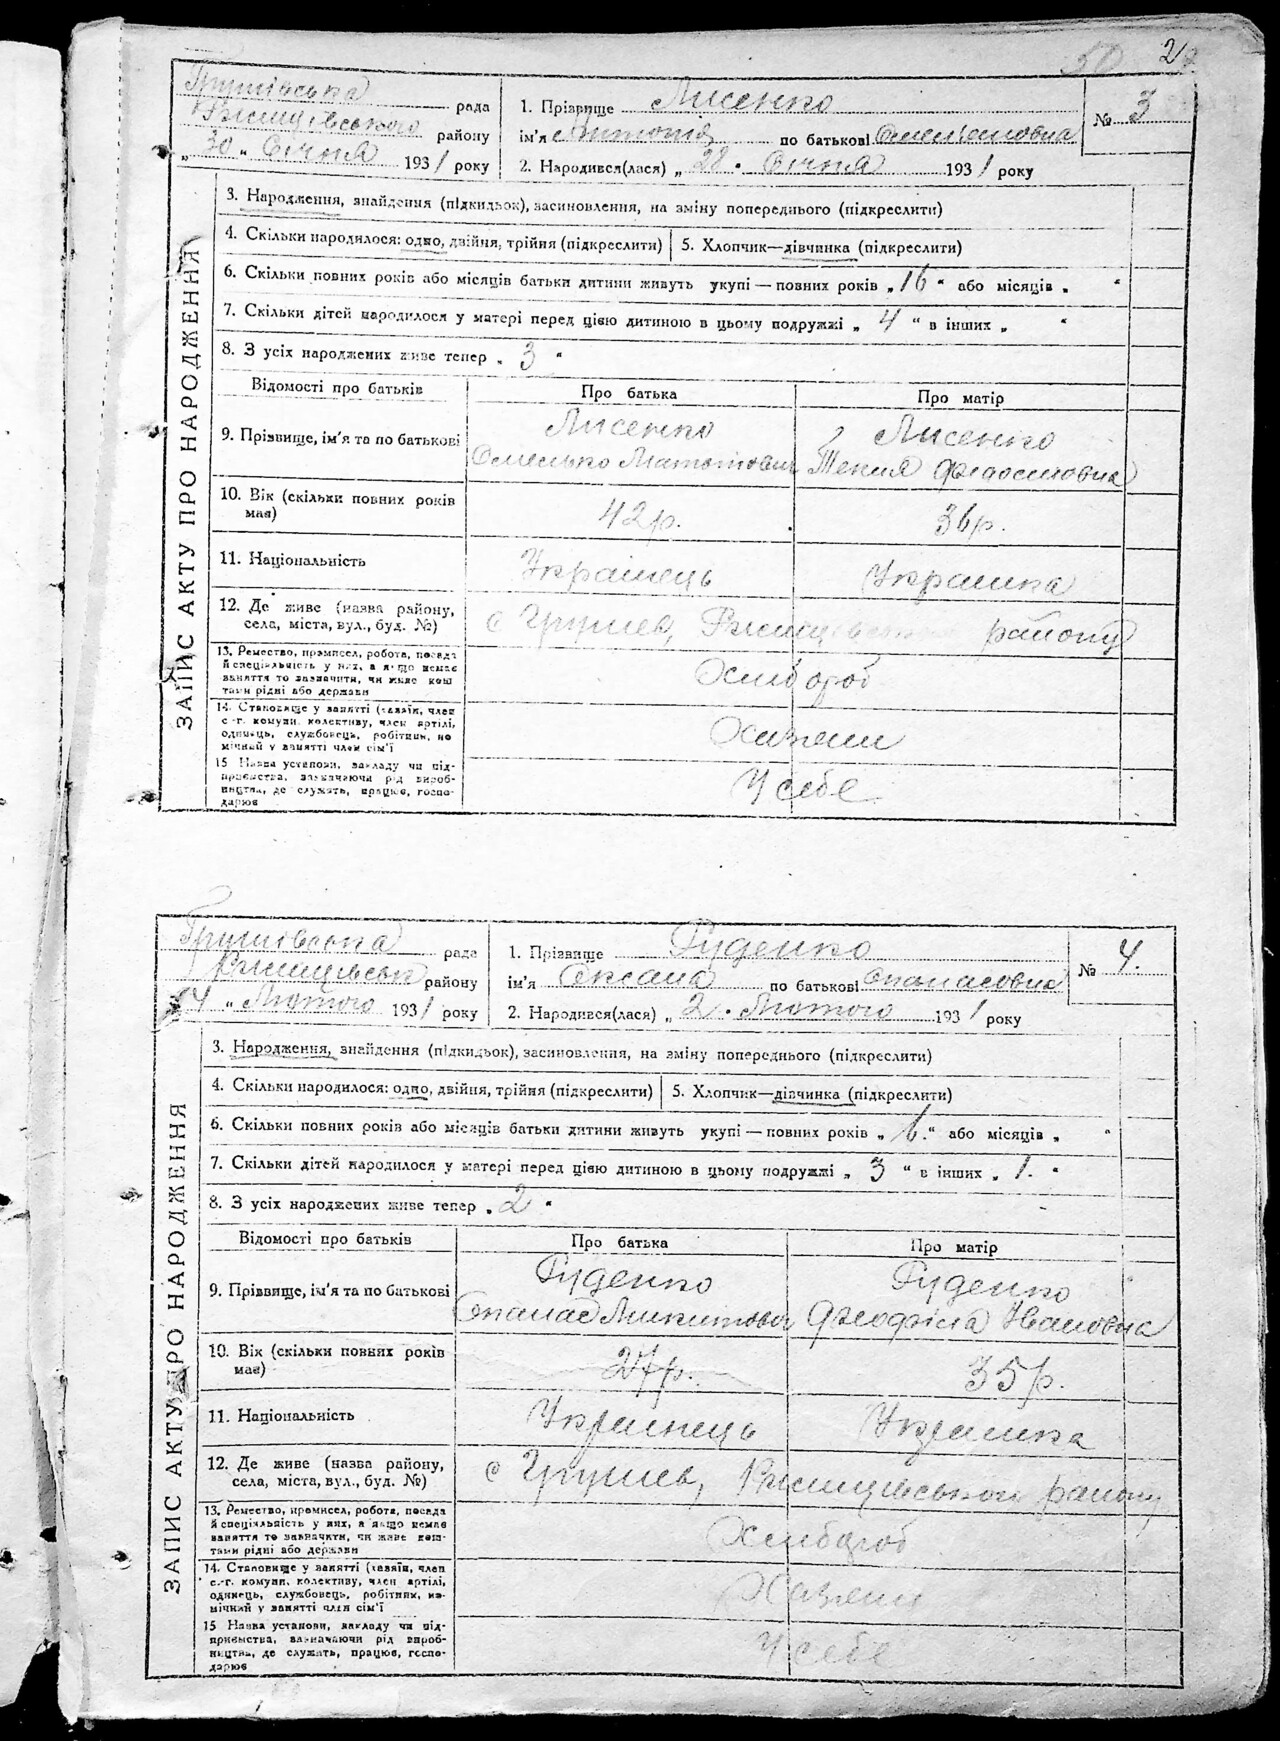 50 2
Грушівська рада
Ржищівського району
„30„ Січня 1931 року
1. Прізвище Лисенко
ім'я по батькові Омельяновна
2. Народився(лася) „28" Січня 1931 року
№ 3
ЗАПИС АКТУ ПРО НАРОДЖЕННЯ
3. Народження, знайдення (підкидьок), засиновлення, на зміну попереднього (підкреслити)
4. Скільки народилося: одно, двійня, трійня (підкреслити) 5. Хлопчик—дівчинка (підкреслити)
6. Скільки повних років або місяців батьки дитини живуть укупі — повних років „16" або місяців „ "
7. Скільки дітей народилося у матері перед цією дитиною в цьому подружжі „4" в інших „ "
8. З усіх народжених живе тепер „3"
Відомості про батьків Про батька Про матір
9. Прізвище, ім'я та по батькові
Лисенко
Омелько
Лисенко
Текля Федосиовна
10. Вік (скільки повних років
має)
42р. 36р.
11. Національність Українець Українка
12. Де живе (назва району,
села, міста, вул., буд. №)
с Грушев, Ржищівського району
13. Ремество, промисел, робота, посада
й спеціяльність у них, а якщо немає
заняття то зазначити, чи живе кош
тами рідні або держави
Хлибороб
14. Становище у занятті (хазяїн, член
с.-г. комуни, колективу, член артілі,
одинець, службовець, робітник, по
мічний у занятті член сім'ї
Хазяени
15 Назва установи, закладу чи під-
приємства, зазначаючи рід вироб-
ництва, де служить, працює, госпо-
дарює
У себе
Грушівська рада
Ржищівськ району
„4„ Лютого 1931 року
1. Прізвище Руденко
ім'я Оксана по батькові Опанасовна
2. Народився(лася) „2" Лютого 1931 року
№ 4.
ЗАПИС АКТУ ПРО НАРОДЖЕННЯ
3. Народження, знайдення (підкидьок), засиновлення, на зміну попереднього (підкреслити)
4. Скільки народилося: одно, двійня, трійня (підкреслити) 5. Хлопчик—дівчинка (підкреслити)
6. Скільки повних років або місяців батьки дитини живуть укупі — повних років „6." або місяців „ "
7. Скільки дітей народилося у матері перед цією дитиною в цьому подружжі „3" в інших „1."
8. З усіх народжених живе тепер „2"
Відомості про батьків Про батька Про матір
9. Прізвище, ім'я та по батькові
Руденко
Опанас Микитович
Руденко
Феофіла Івановна
10. Вік (скільки повних років
має)
27р. 35р.
11. Національність Українець Українка
12. Де живе (назва району,
села, міста, вул., буд. №)
с Грушев, Ржищівського району
13. Ремество, промисел, робота, посада
й спеціяльність у них, а якщо немає
заняття то зазначити, чи живе кош-
тами рідні або держави
Хлибороб
14. Становище у занятті (хазяїн, член
с.-г. комуни, колективу, член артілі,
одинець, службовець, робітник, по-
мічний у занятті член сім'ї
Хазяени
15 Назва установи, закладу чи під-
приємства, зазначаючи рід вироб-
ництва, де служить, працює, госпо-
дарює
У себе